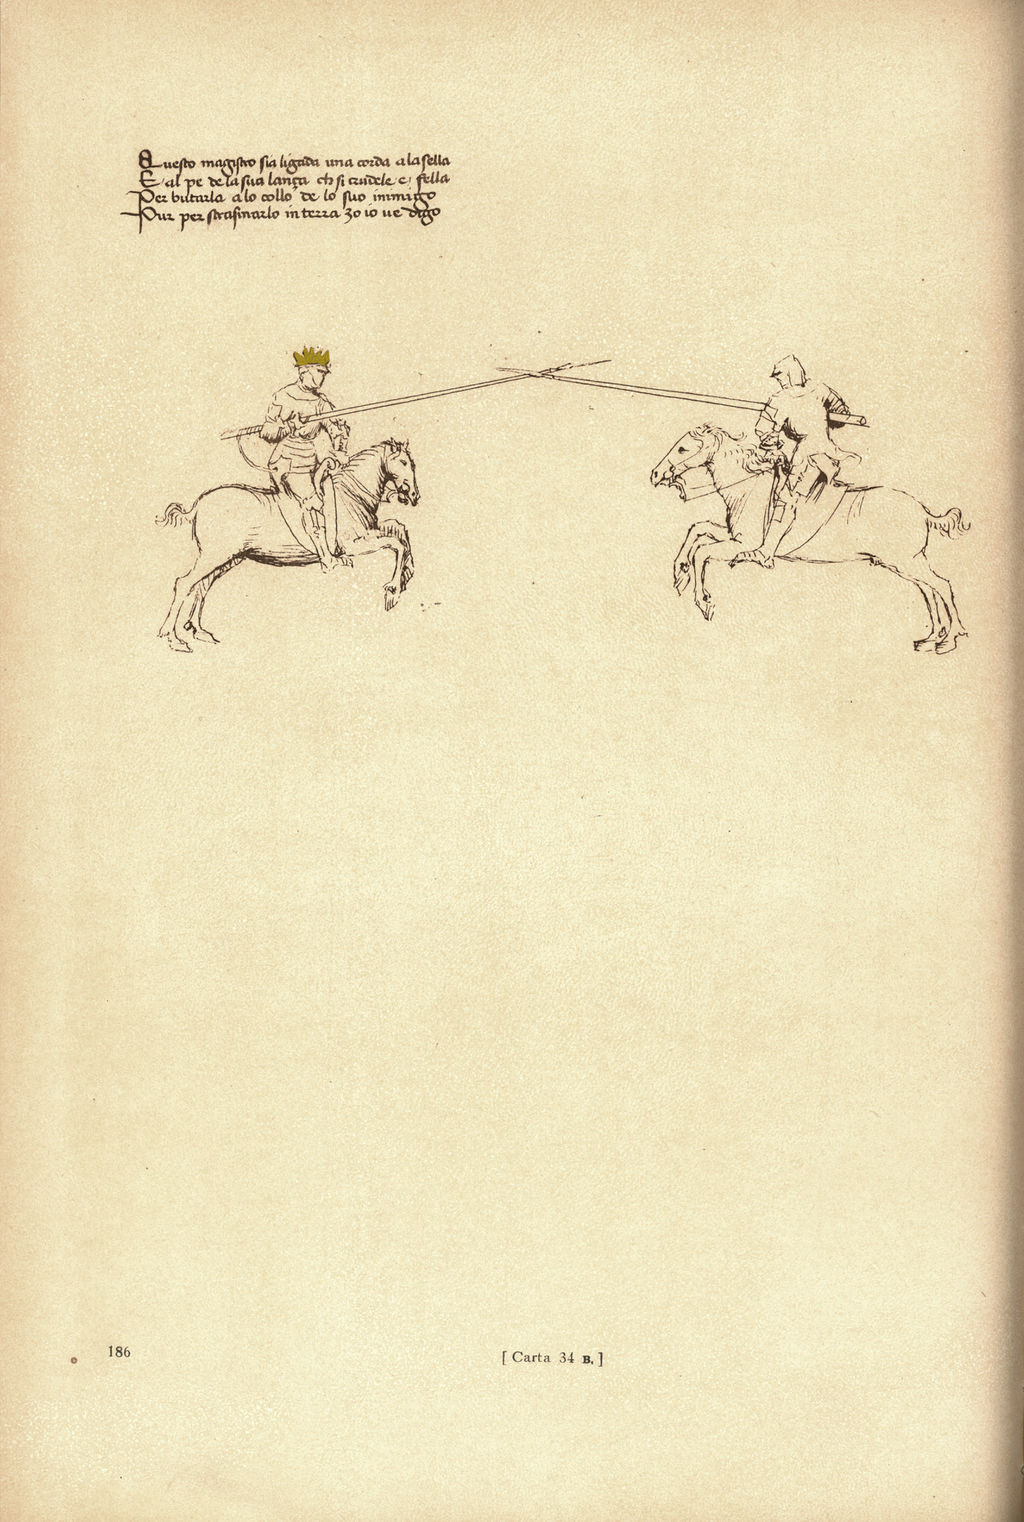 Questo magistro sia ligada una corda a la sella
E al pe de la sua lança ch si crudele e fella
Per butarla a lo collo de lo suo inimigo
Pur per strasinarlo in terra zo io ve digo
186
[ Carta 34 B. ]